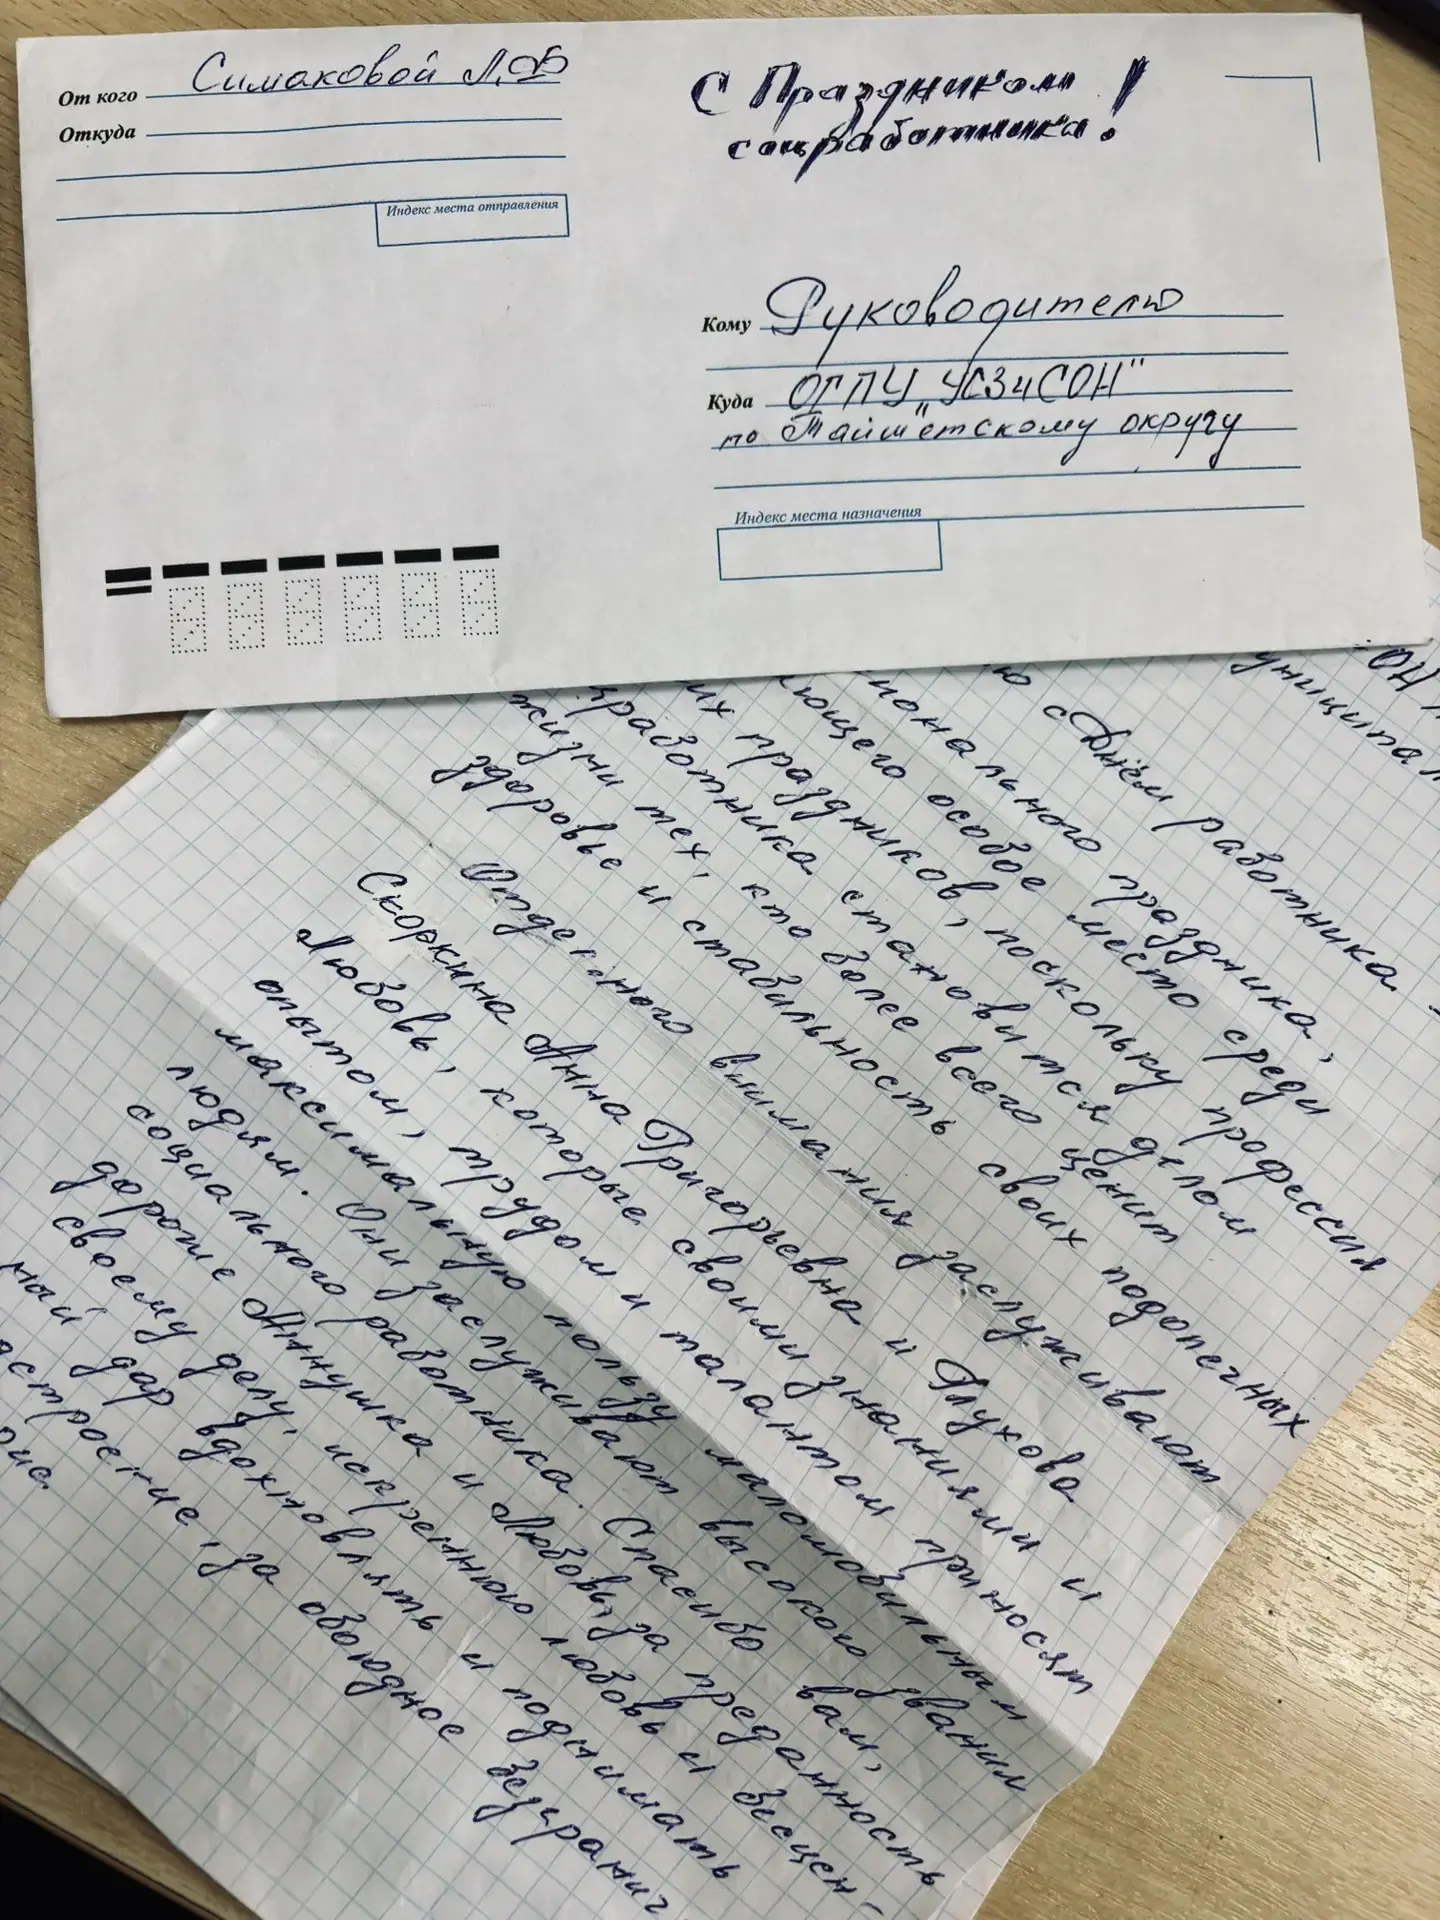 От кого Симаковой Л.Ф
Откуда
Индекс места отправления
С Праздником
соцработника!
Кому Руководителю
Куда ОГПУ "УСЗиСОН"
по Тайшетскому округу
Индекс места назначения
ОН
униципал
ю с Днём работника
ионального праздника,
ющего особое место среди
их праздников, поскольку профессия
цработника становится делом
жизни тех, кто более всего ценит
здоровье и стабильность своих подопечных
Отдельного внимания заслуживают
Скоркина Анна Григорьевна и Глухова
Любовь, которые своими знаниями и
опытом, трудом и талантом приносят
максимальную пользу маломобильным
людям. Они заслуживают высокого звания
социального работника. Спасибо вам,
дорогие Аннушка и Любовь, за преданность
своему делу, искреннюю любовь и бесцен-
ный дар вдохновлять и поднимать
астроение, за обоюдное безгранич